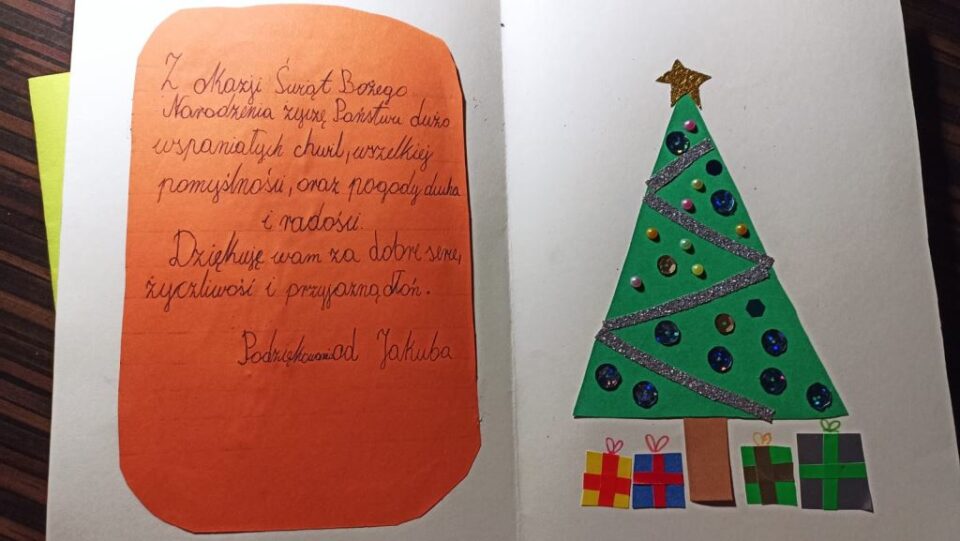 Z okazji Świąt Bożego
Narodzenia życzę Państwu dużo
wspaniałych chwil, wszelkiej
pomyślności, oraz pogody ducha
i radości.
Dziękuję wam za dobre serce,
życzliwość i przyjazną dłoń.
Podziękowania od Jakuba